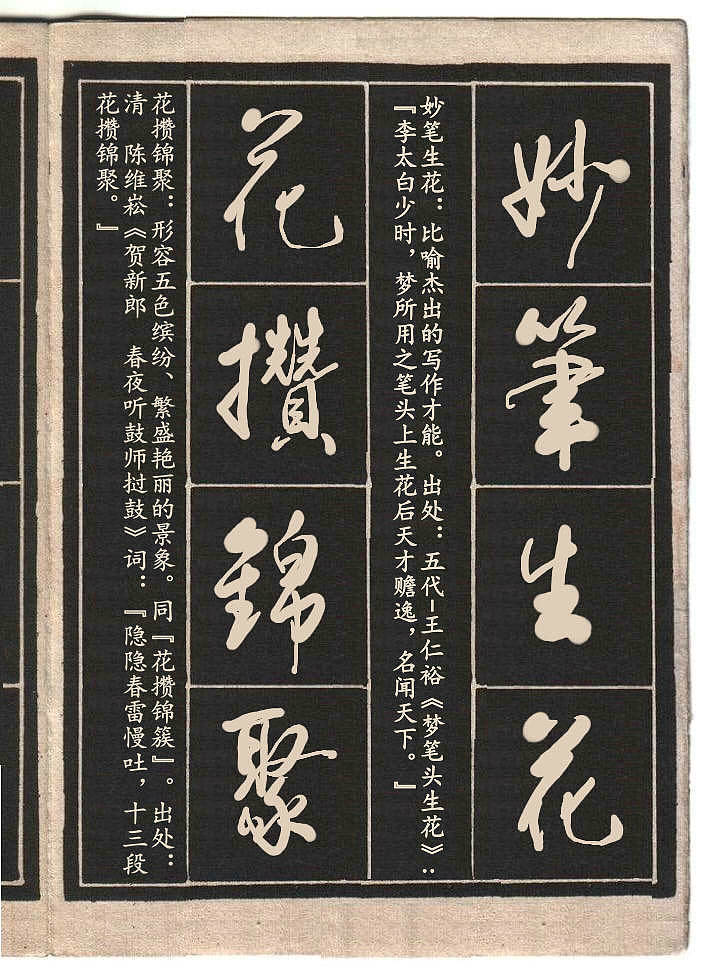 妙筆生花
妙笔生花：比喻杰出的写作才能。出处：五代-王仁裕《梦笔头生花》：
『李太白少时，梦所用之笔头上生花后天才赡逸，名闻天下。』
花攢錦聚
花攒锦聚：形容五色缤纷、繁盛艳丽的景象。同『花攒锦簇』。出处：
清 陈维崧《贺新郎 春夜听鼓师挝鼓》词：『隐隐春雷慢吐，十三段
花攒锦聚。』